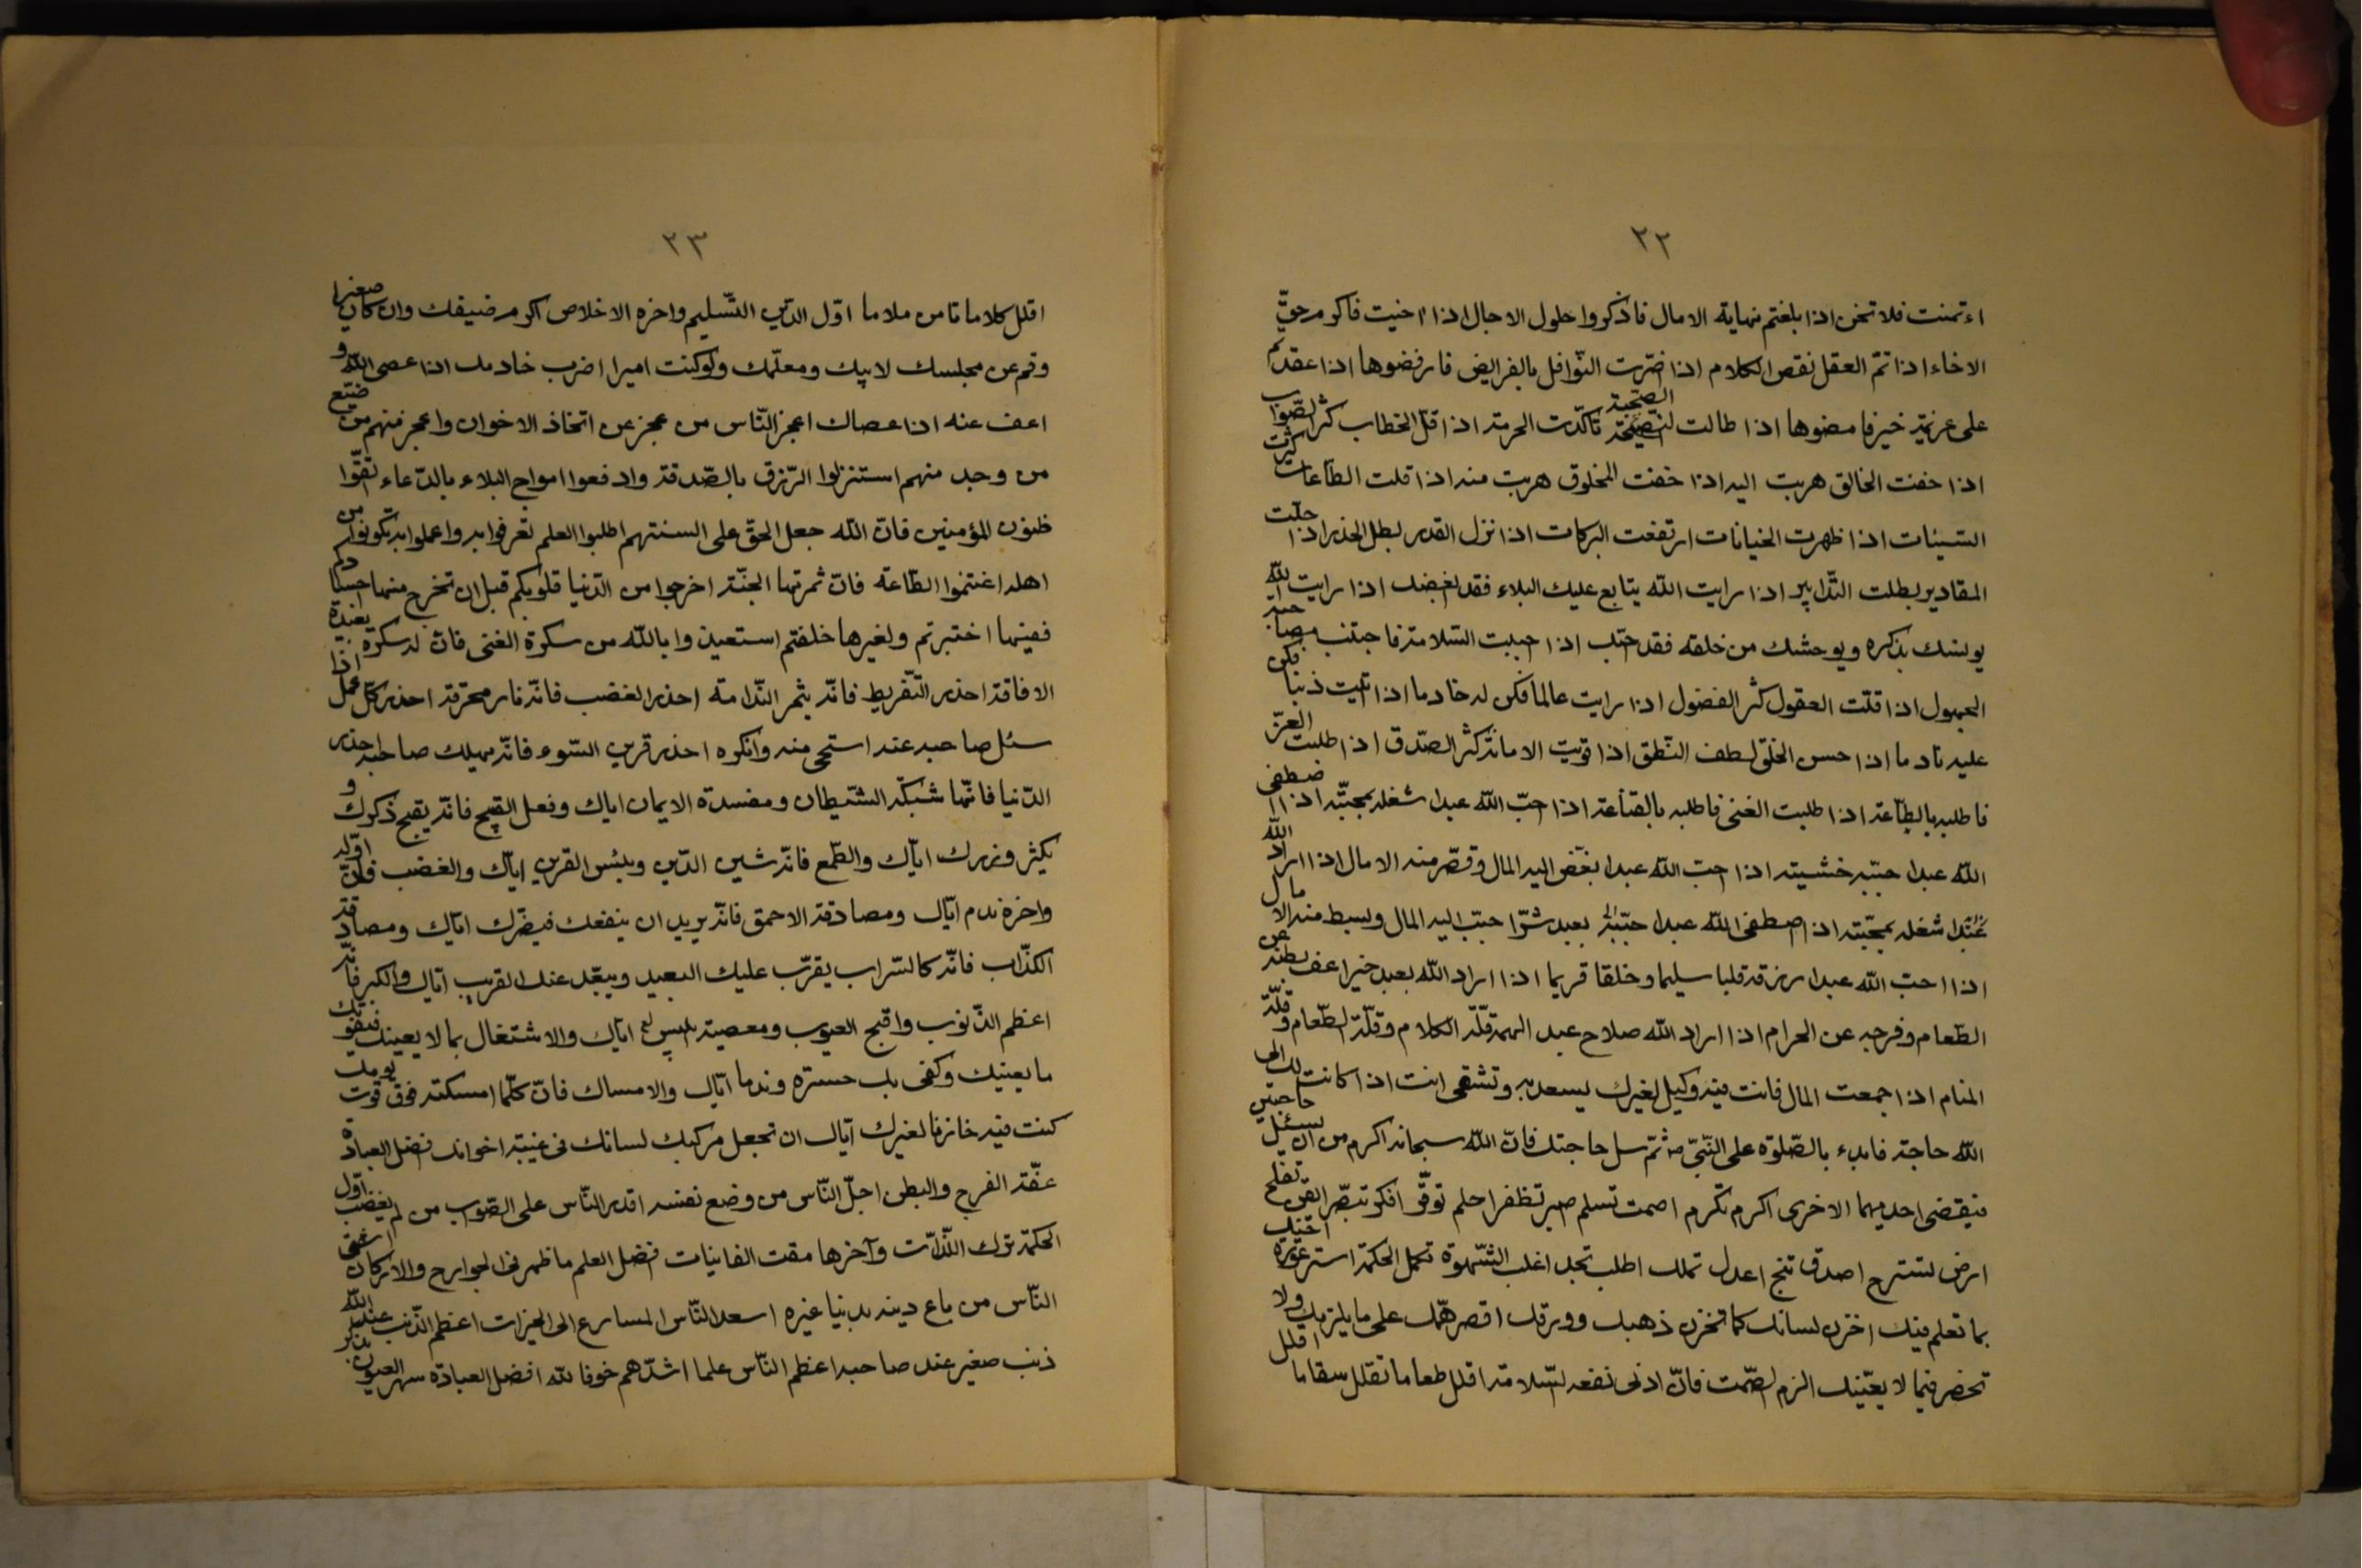 ٢٢
اءتمنت فلا تخن اذا بلغتم نهاية الامال فاذكروا حلول الاجال اذا اخيت فاكرم حقّ
الاخاء اذا تمّ العقل نقص الكلام اذا اضرّت النّوافل بالفرايض فارفضوها اذا عقدتم
على عزيمة خير فامضوها اذا طالت الصّحبة تاكّدت الحرمة اذا قلّ الخطاب كثر الصّواب
اذا خفت الخالق هربت اليه اذا خفت المخلوق هربت منه اذا قلت الطّاعات كثرت
السّيئات اذا ظهرت الخيانات ارتفعت البركات اذا نزل القدر بطل الحذر اذا حلّت
المقادير بطلت التّدابير اذا رايت الله يتابع عليك البلاء فقد ابغضك اذا رايت الله
يونسك بذكره ويوحشك من خلقه فقد احبّك اذا احببت السّلامة فاجتنب مصاحبة
الجهول اذا قلّت العقول كثر الفضول اذا رايت عالما فكن له خادما اذا اتيت ذنبا فكن
عليه نادما اذا حسن الخلق لطف النّطق اذا قويت الامانة كثر الصّدق اذا طلبت العزّ
فاطلبه بالطّاعة اذا طلبت الغنى فاطلبه بالقناعة اذا احبّ الله عبدا شغله بمحبّته اذا اصطفى
الله عبدا جبّبه خشيته اذا احبّ الله عبدا بغّض اليه المال وقصّر منه الامال اذا اراد الله
بعبد شرّا حبّب اليه المال وبسط منه الامال
اذا احبّ الله عبدا رزقه قلبا سليما وخلقا قويما اذا اراد الله بعبد خيرا اعف بطنه عن
الطّعام وفرجه عن الحرام اذا اراد الله صلاح عبد الهمه قلّة الكلام وقلّة الطّعام وقلّة
المنام اذا جمعت المال فانت فيه وكيل لغيرك يسعد به وتشقى انت اذا كانت لك الى
الله حاجة فابدء بالصّلوة على النّبىّ ثمّ سل حاجتك فانّ الله سبحانه اكرم من ان يسئل حاجتين
فيقضى احديهما الاخرى اكرم تكرم اصمت تسلم اصبر تظفر احلم توقّر افكر تبصّر اتّق تفلح
ارض تسترح اصدق تنج اعدل تملك اطلب تجد اغلب الشّهوة تكمل الحكمة استر عورة اخيك
بما تعلم فيك اخزن لسانك كما تخزن ذهبك وورقك اقصر همّك على ما يلزمك ولا
تخض فيما لا يعنيك الزم الصّمت فانّ ادنى نفعه السّلامة اقلل طعاما تقلل سقاما اقلل
٢٣
اقلل كلاما تامن ملاما اوّل الدّين التّسليم واخره الاخلاص اكرم ضيفك وان كان صغيرا
وقم عن مجلسك لابيك ومعلّمك ولو كنت اميرا اضرب خادمك اذا عصى الله و
اعف عنه اذا عصاك اعجز النّاس من عجز عن اتخاذ الاخوان واعجز منهم من ضيّع
من وجد منهم استنزلوا الرّزق بالصّدقة وادفعوا امواج البلاء بالدّعاء اتّقوا
ظنون المؤمنين فانّ الله جعل الحقّ على السنتهم اطلبوا العلم تعرفوا به واعملوا به تكونوا من
اهله اغتنموا الطّاعة فانّ ثمرتها الجنّة اخرجوا من الدّنيا قلوبكم قبل ان تخرج منها اجسادكم
ففيها اختبرتم ولغيرها خلقتم استعيذوا بالله من سكرة الغنى فانّ له سكرة بعيدة
الافاقة احذر التّفريط فانّه يثمر النّدامة احذر الغضب فانّه نار محرقة احذر كلّ عمل اذا
سئل صاحبه عنه استحى منه وانكره احذر قرين السّوء فانّه يهلك صاحبه احذر
الدّنيا فانّها شبكة الشّيطان ومفسدة الايمان اياك وفعل القبيح فانّه يقبح ذكرك و
يكثر وزرك ايّاك والطّمع فانّه شين الدّين وبئس القرين ايّاك والغضب فانّ اوّله
واخره ندم ايّاك ومصادقة الاحمق فانّه يريد ان ينفعك فيضرّك ايّاك ومصادقة
الكذّاب فانّه كالسّراب يقرّب عليك البعيد ويبعّد عنك القريب ايّاك والكبر فانّه
اعظم الذّنوب واقبح العيوب ومعصية ابليس ايّاك والاشتغال بما لا يعينك فيفوتك
ما يعنيك وكفى بك حسرة وندما ايّاك والامساك فانّ كلّما امسكته فوق قوت يومك
كنت فيه خازنا لغيرك ايّاك ان تجعل مركبك لسانك فى غيبة اخوانك افضل العبادة
عفّة الفرج والبطن اجلّ النّاس من وضع نفسه اقدر النّاس على الصّواب من لم يغضب اوّل
الحكمة ترك اللّذّات وآخرها مقت الفانيات افضل العلم ما ظهر فى الجوارح والاركان اشقى
النّاس من باع دينه بدنيا غيره اسعد النّاس المسارع الى الخيرات اعظم الذّنب عند الله
ذنب صغير عند صاحبه اعظم النّاس علما اشدّهم خوفا لله افضل العبادة سهر العيون بذكر